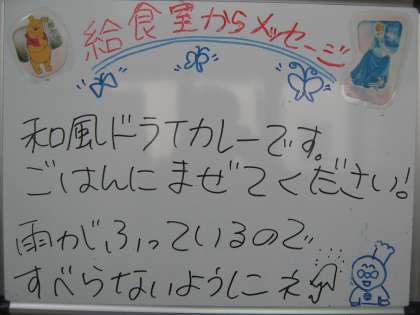 給食室からメッセージ
和風ドライカレーです。
ごはんにまぜてください!
雨がふっているので
すべらないようにネ